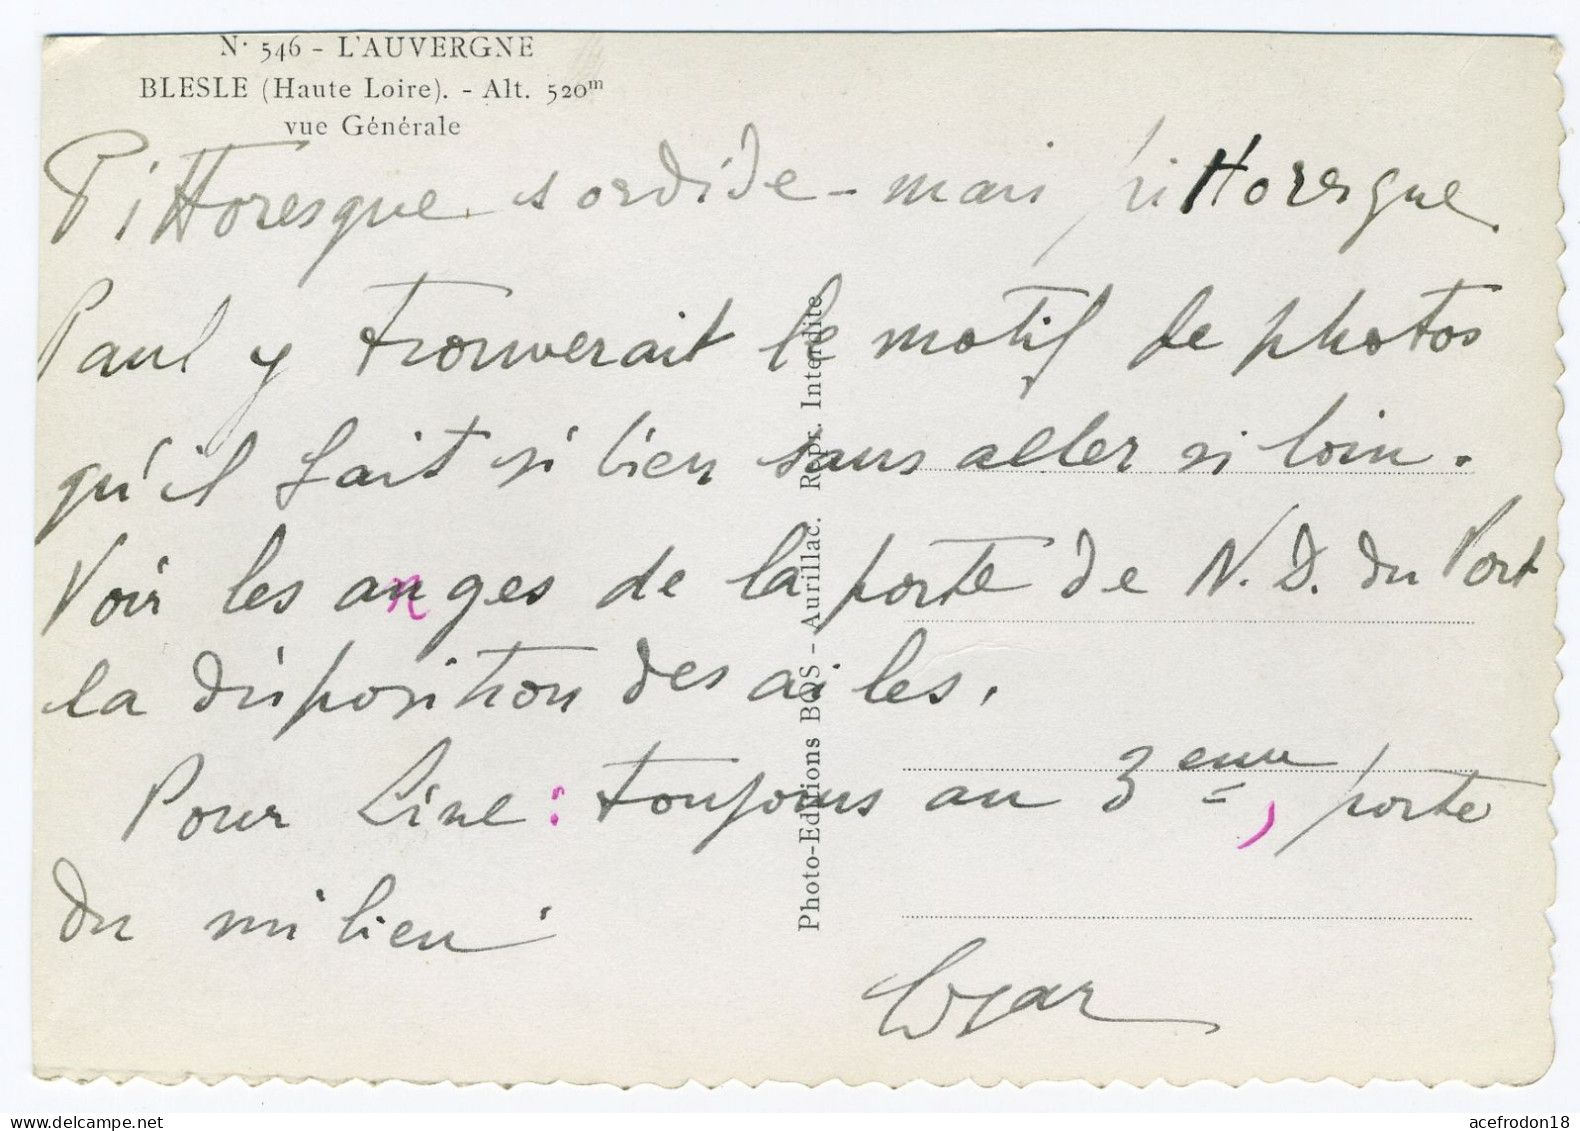 N° 546 - L'AUVERGNE
BLESLE (Haute Loire). - Alt. 520m
vue Générale
Pittoresque sordide - mais pittoresque
Paul y trouverait le motif de photos
qu'il fait si bien sans aller si loin.
Voir les anges de la porte de N. D. du Port
la disposition des ailes.
Pour Line : toujours au 3eme, porte
du milieu
Photo-Editions BOS - Aurillac. Repr. Interdite
acefrodon18